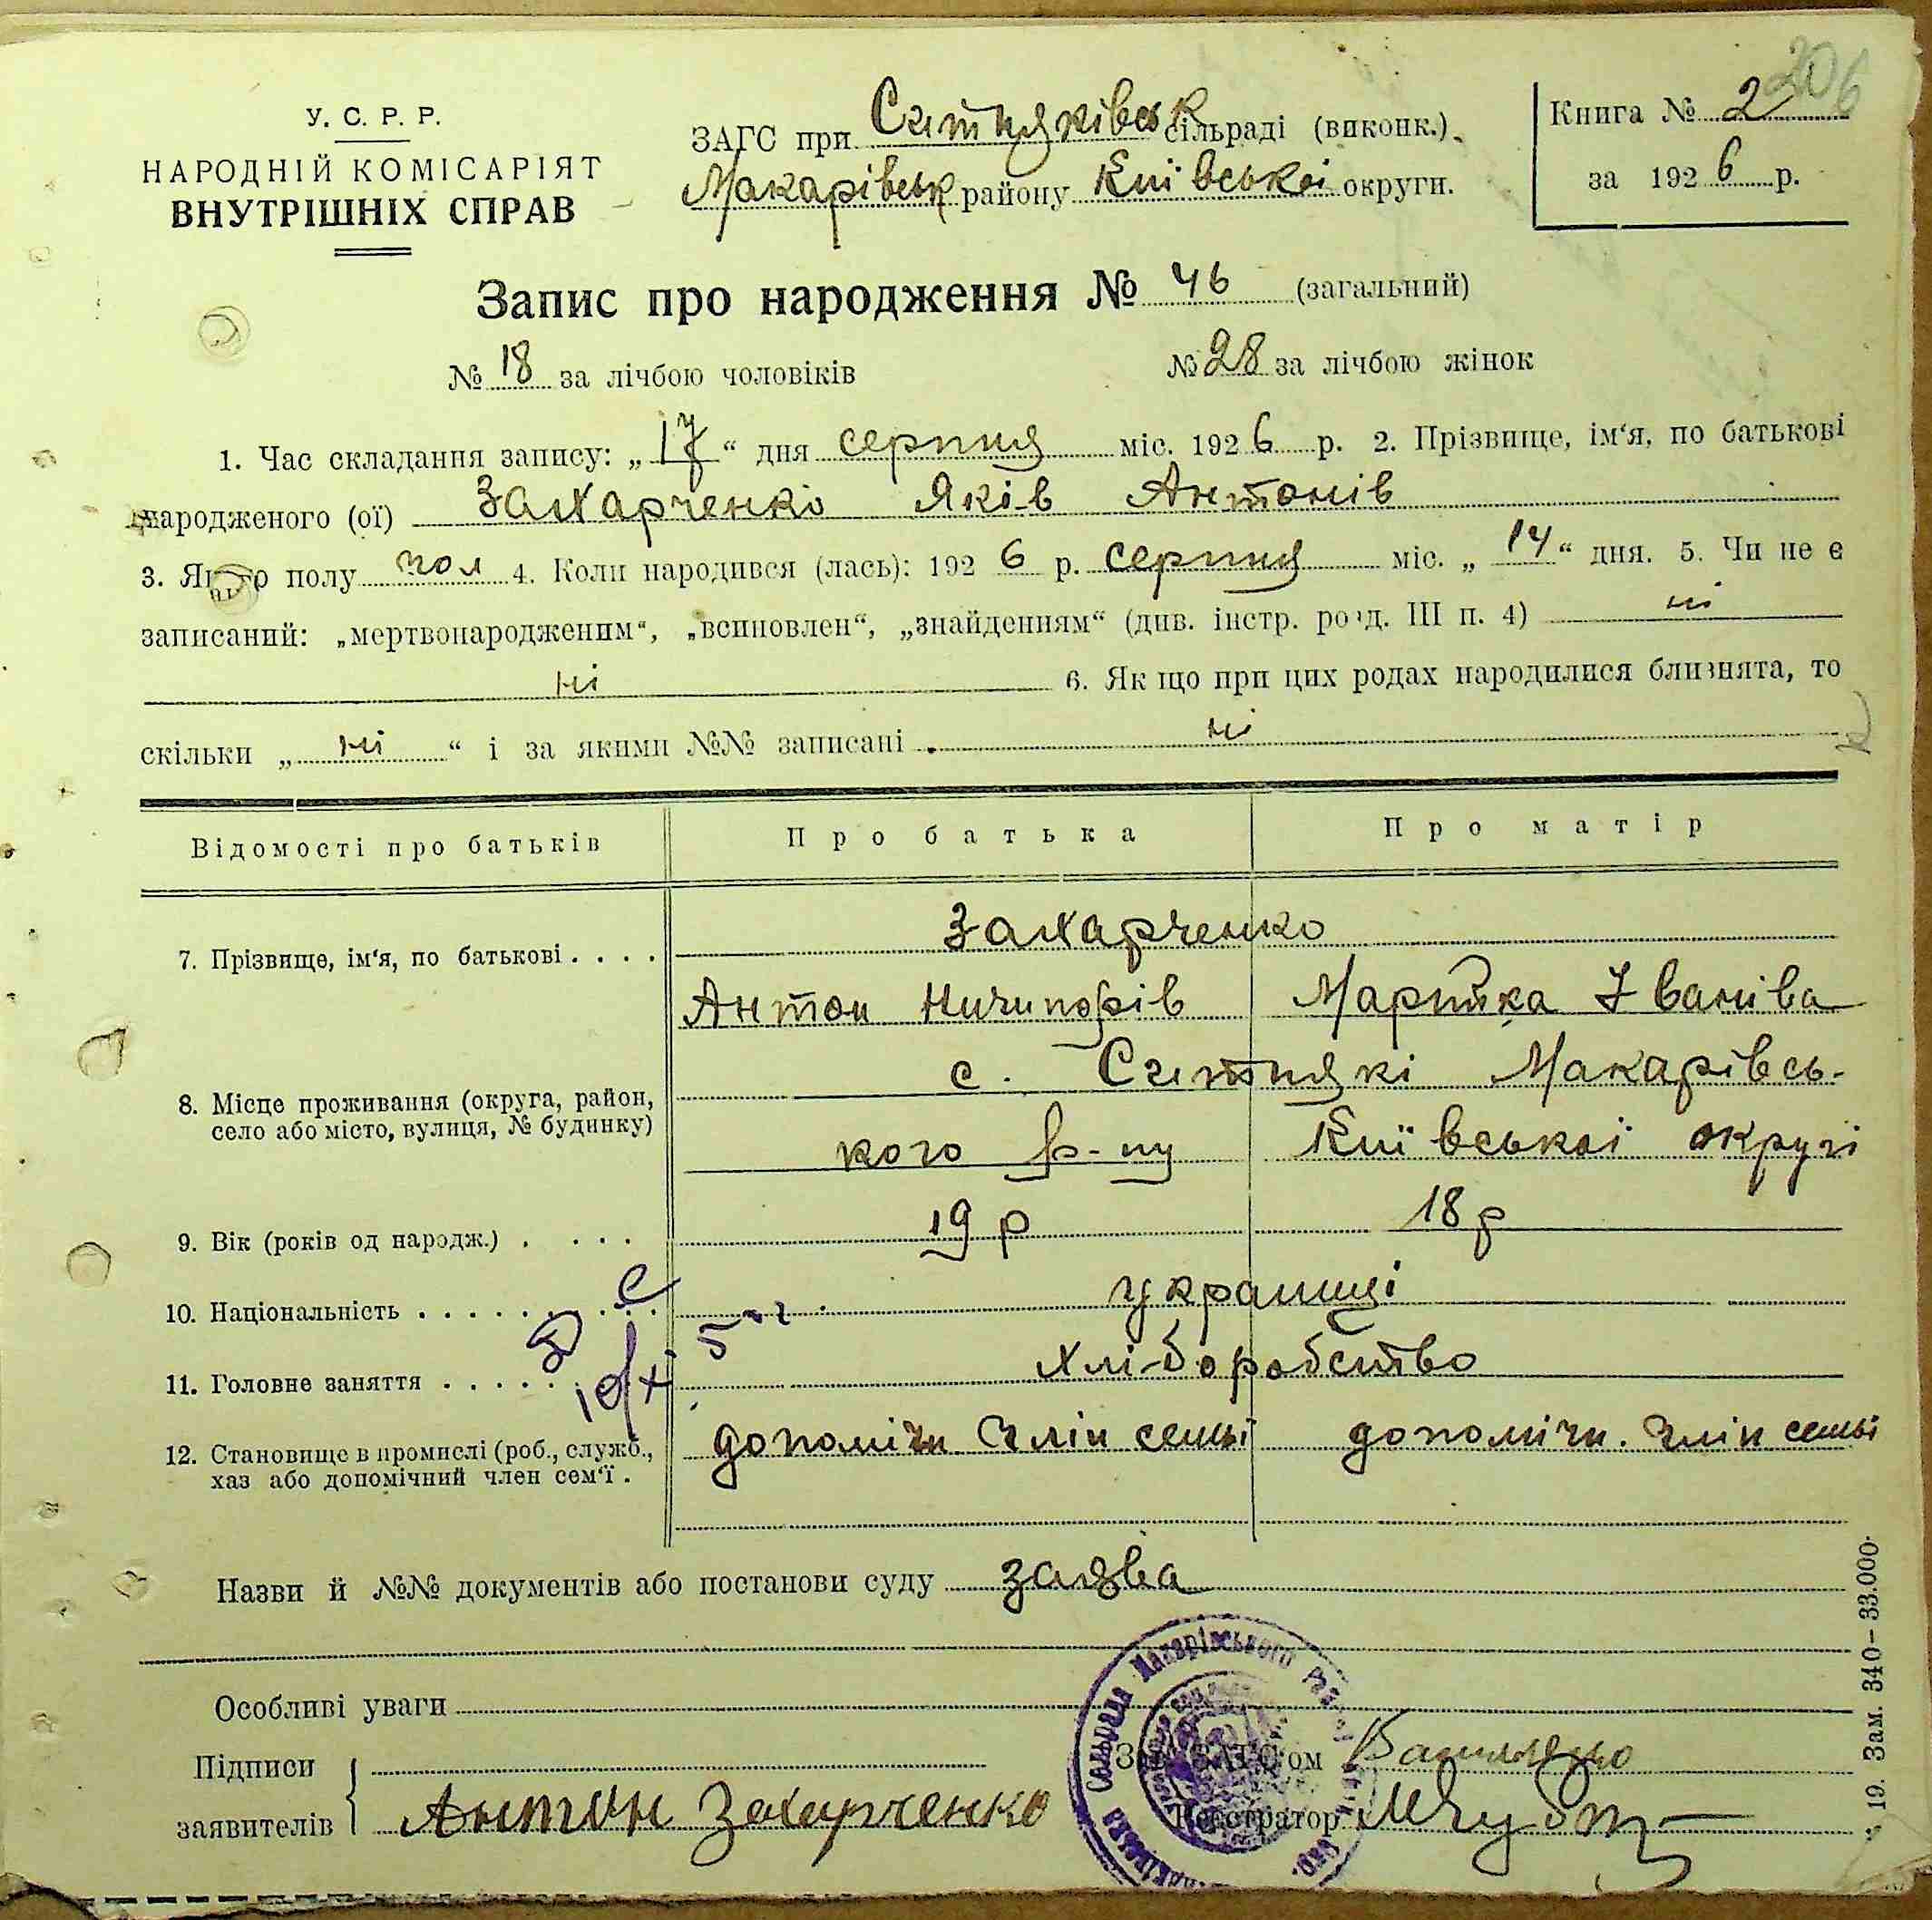 206
У. С. Р. Р.
НАРОДНІЙ КОМІСАРІЯТ
ВНУТРІШНІХ СПРАВ
ЗАГС при Ситняківськ сільраді (виконк.)
Макарівськ району Київської округи.
Книга № 2
за 1926 р.
Запис про народження № 46 (загальний)
№ 18 за лічбою чоловіків № 28 за лічбою жінок
1. Час складання запису: „17“ дня серпня міс. 1926 р. 2. Прізвище, ім‘я, по батькові
народженого (ої) Захарченко Яків Антонів
3. Якого полу чол 4. Коли народився (лась): 1926 р. серпня міс. „14“ дня. 5. Чи не є
записаний: „мертвонародженим“, „всиновлен“, „знайденням“ (див. інстр. розд. III п. 4) ні
ні 6. Якщо при цих родах народилися близнята, то
скільки „ні“ і за якими №№ записані ні
Відомості про батьків Про батька Про матір
Захарченко
7. Прізвище, ім‘я, по батькові . . . .
Антон Ничипорів Марійка Іванівa
с. Ситнякі Макарівсь-
8. Місце проживання (округа, район,
село або місто, вулиця, № будинку)
кого р-ну Київської округі
9. Вік (років од народж.) . . . . 19 р 18 р
10. Національність . . . . . . . . українці
11. Головне заняття . . . . . . хліборобство
12. Становище в промислі (роб., служб.,
хаз або допомічний член сем‘ї .
допомічн член семьї допомічн. член семьі
Назви й №№ документів або постанови суду заява
Особливі уваги
Підписи
заявителів
Антон Захарченко
Зав. ЗАГС‘ом
Реєстратор
19. Зам. 340–33.000.